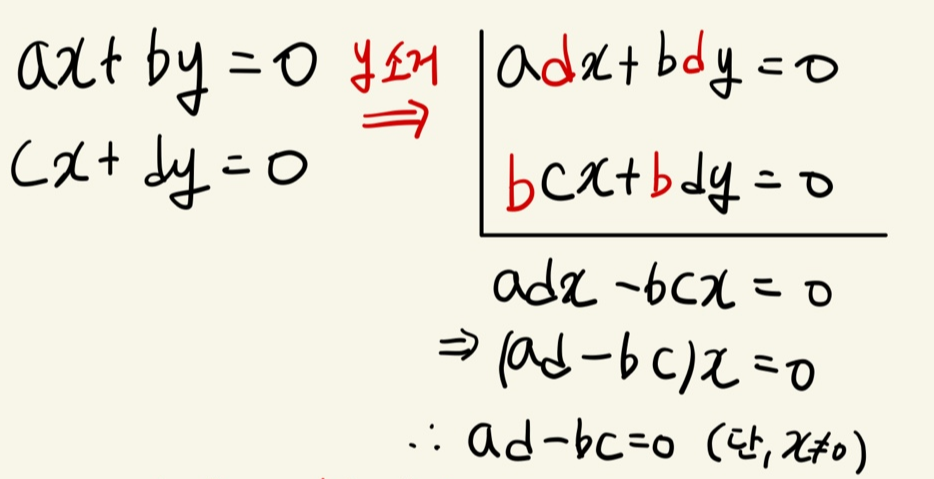 ax + by = 0 y소거 ⇒
cx + dy = 0
adx + bdy = 0
bcx + bdy = 0
adx - bcx = 0
⇒ (ad - bc)x = 0
∴ ad - bc = 0 (단, x ≠ 0)